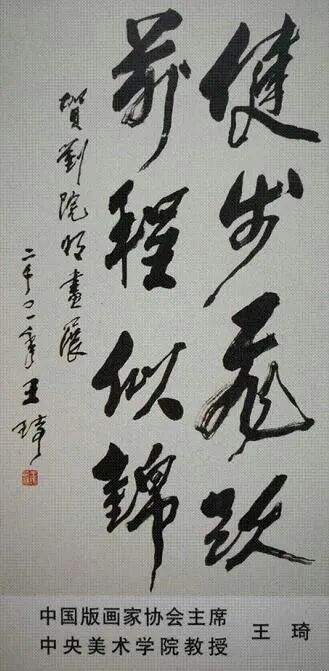 健步飛跃
前程似錦
賀劉院明畫展
二千〇一年王琦
中国版画家协会主席
中央美术学院教授
王琦